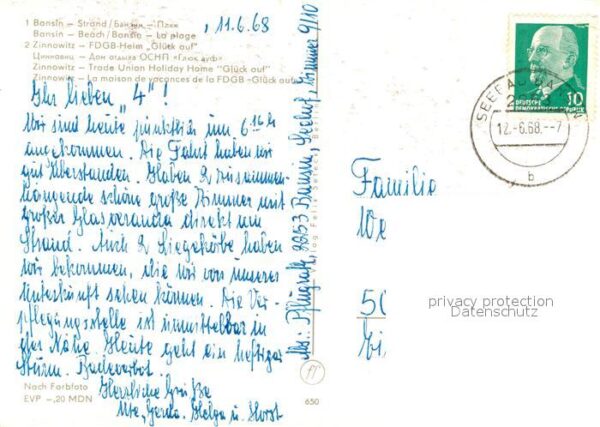 1 Bansin – Strand / Бансин – Пляж
Bansin – Beach / Bansin – La plage
2 Zinnowitz – FDGB-Heim „Glück auf"
Цинновиц – Дом отдыха ОСНП «Глюк ауф»
Zinnowitz – Trade Union Holiday Home "Glück auf"
Zinnowitz – La maison de vacances de la FDGB «Glück auf»
, 11.6.68
Ihr lieben „4"!
Wir sind heute pünktlich um 6 16 h
angekommen. Die Fahrt haben wir
gut überstanden. Haben 2 zusammen-
hängende schöne große Zimmer mit
großer Glasveranda direkt am
Strand. Auch 2 Liegekörbe haben
wir bekommen, die wir von unserer
Unterkunft sehen können. Die Ver-
pflegungsstelle ist unmittelbar in
der Nähe. Heute geht ein heftiger
Sturm. Badeverbot.
Herzliche Grüße
Ute, Gerda, Helga u. Horst
Nach Farbfoto
EVP –,20 MDN
630
Abs.: Pflugrath, 2253 Bansin, Seehof, Zimmer 9/10
DEUTSCHE
DEMOKRATISCHE REPUBLIK
10
SEEBAD
12.-6.68.--7
b
Familie
We
50
privacy protection
Datenschutz